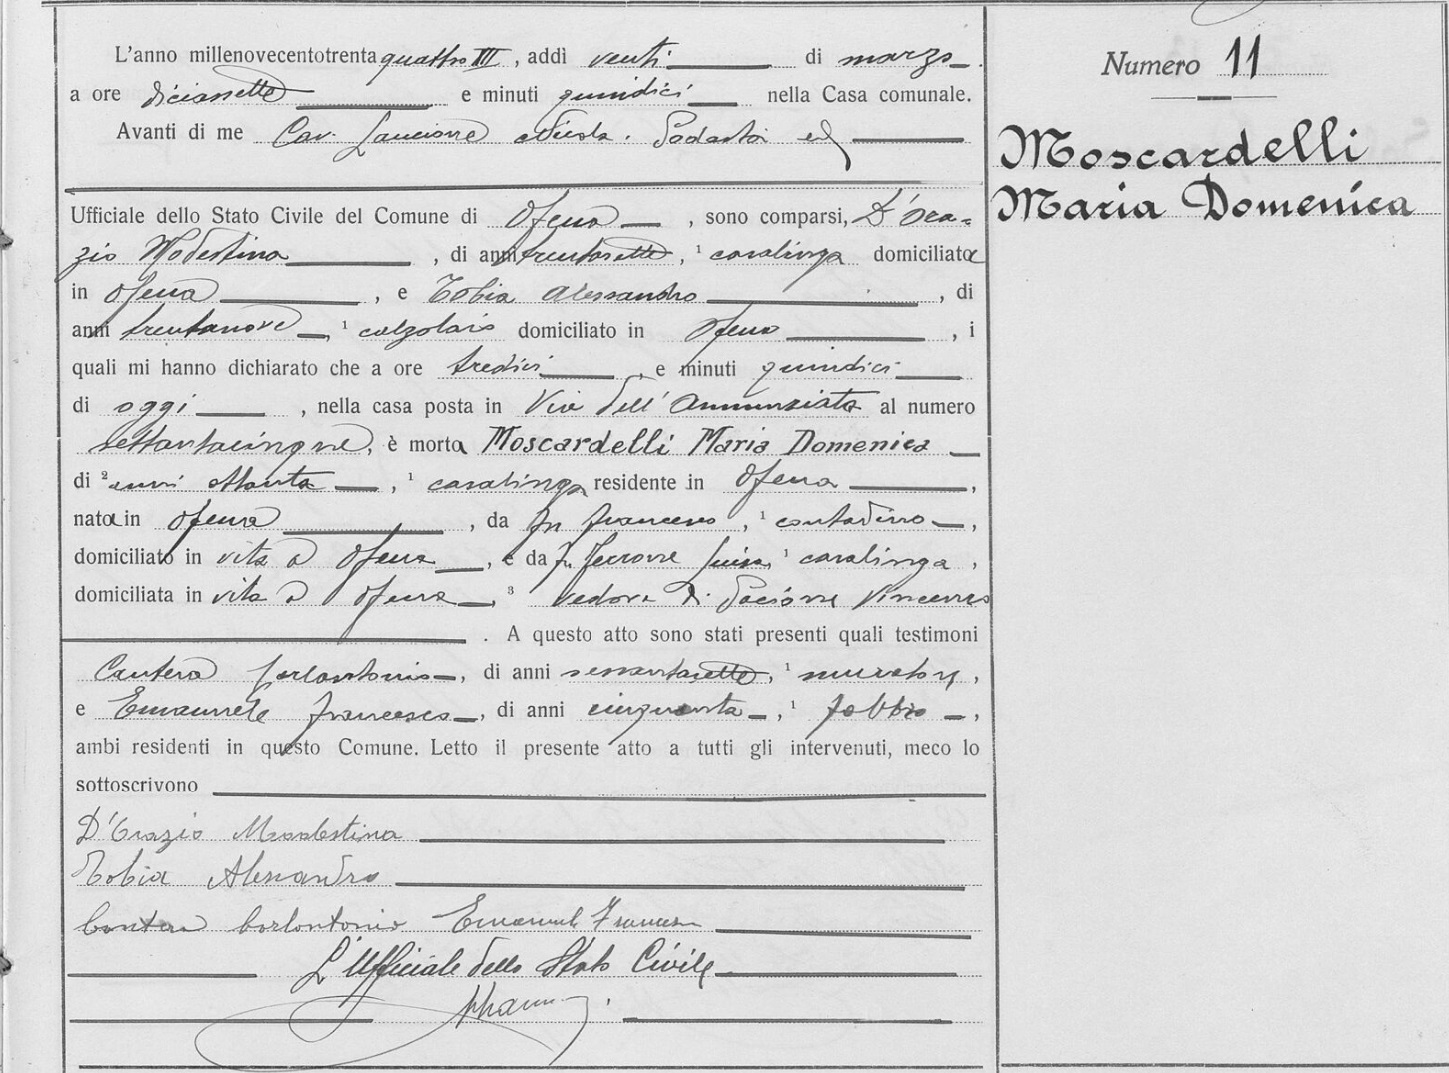 L'anno millenovecentotrentaquattro XII, addì venti di marzo.
a ore diciassette e minuti quindici nella Casa comunale.
Avanti di me Cav. Nicola. Podestà ed
Ufficiale dello Stato Civile del Comune di Ofena, sono comparsi, D'Ora=
zio Modestina, di anni trentasette, ¹ casalinga domiciliata
in Ofena, e Tobia Alessandro, di
anni trentanove, ¹ calzolaio domiciliato in Ofena, i
quali mi hanno dichiarato che a ore tredici, e minuti quindici
di oggi, nella casa posta in Via dell'Annunziata al numero
settantacinque, è morta Moscardelli Maria Domenica
di ² anni ottanta, ¹ casalinga residente in Ofena,
nata in Ofena, da fu Francesco, ¹ contadino,
domiciliato in vita a Ofena, e da fu Ferrone Luisa, ¹ casalinga,
domiciliata in vita a Ofena, ³ vedova di Pacione Vincenzo
. A questo atto sono stati presenti quali testimoni
Cantera Carlantonio, di anni sessantasette, ¹ muratore,
e Emanuele Francesco, di anni cinquanta, ¹ fabbro,
ambi residenti in questo Comune. Letto il presente atto a tutti gli intervenuti, meco lo
sottoscrivono
D'Orazio Modestina
Tobia Alessandro
Cantera Carlontonio Emanuele Francesco
L'Ufficiale dello Stato Civile
Numero 11
Moscardelli
Maria Domenica